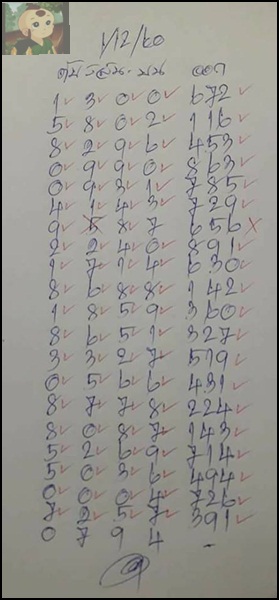 1/12/60
1 3 0 0 672
5 8 0 2 116
8 2 9 6 453
0 9 9 0 863
0 9 3 1 785
4 1 4 3 729
9 5 8 7 656
2 2 4 0 891
1 7 1 4 630
8 6 8 8 142
1 8 5 9 360
8 6 5 1 327
3 3 2 7 519
0 5 6 6 431
8 7 7 8 224
8 0 8 7 143
5 2 6 9 714
5 0 3 6 494
0 0 0 4 726
7 2 5 7 391
0 7 9 4 -